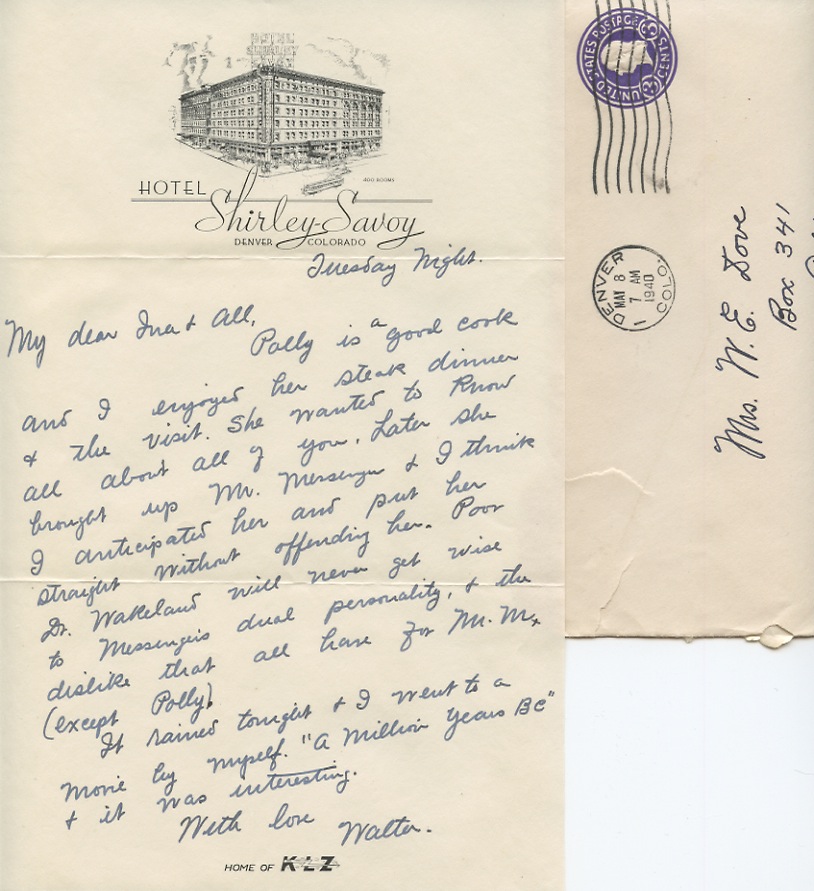 HOTEL
SHIRLEY
SAVOY
400 ROOMS
HOTEL
Shirley-Savoy
DENVER COLORADO
Tuesday Night.
My dear Ina & All,
Polly is a good cook
and I enjoyed her steak dinner
& the visit. She wanted to know
all about all of you. Later she
brought up Mr. Messenger & I think
I anticipated her and put her
straight without offending her. Poor
Dr. Wakeland will never get wise
to Messengers dual personality, & the
dislike that all have for Mr. M.
(except Polly)
It rained tonight & I went to a
movie by myself. "A Million Years BC"
& it was interesting.
With love
Walter.
HOME OF KLZ
UNITED STATES POSTAGE
3 CENTS 3
DENVER
COLO.
1
MAY 8
7 AM
1940
Mrs. W. E. Dove
Box 341